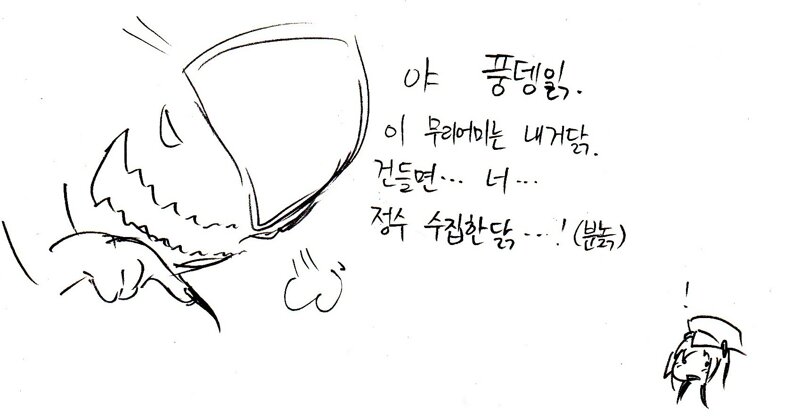 야 풍뎅잃.
이 무리어미는 내거닭.
건들면… 너…
정수 수집한닭…! (분뇱)
!